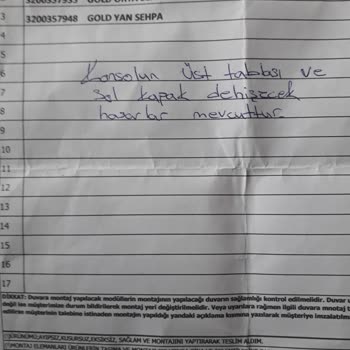 3200357935
3 3200357948 GOLD YAN SEHPA
4
5
6 Konsolun üst tablası ve
7 sol kapak debişecek
8 hasarlar mevcuttur.
9
10
11
12
13
14
15
16
17
DİKKAT: Duvara montaj yapılacak modüllerin montajının yapılacağı duvarın sağlamlığı kontrol edilmelidir. Duvar
değil ise müşterimize durum bildirilerek montaj yeri değiştirilmelidir. Veya uyarılara rağmen ilgili duvara montaj
edilirse müşterinin talebine istinaden montajın yapıldığı yandaki açıklama kısmına yazılarak müşteriye imzalatılmalı
GÖRÜNÜMÜ, AYIPSIZ, KUSURSUZ, EKSİKSİZ, SAĞLAM VE MONTAJINI YAPTIRARAK TESLİM ALDIM.